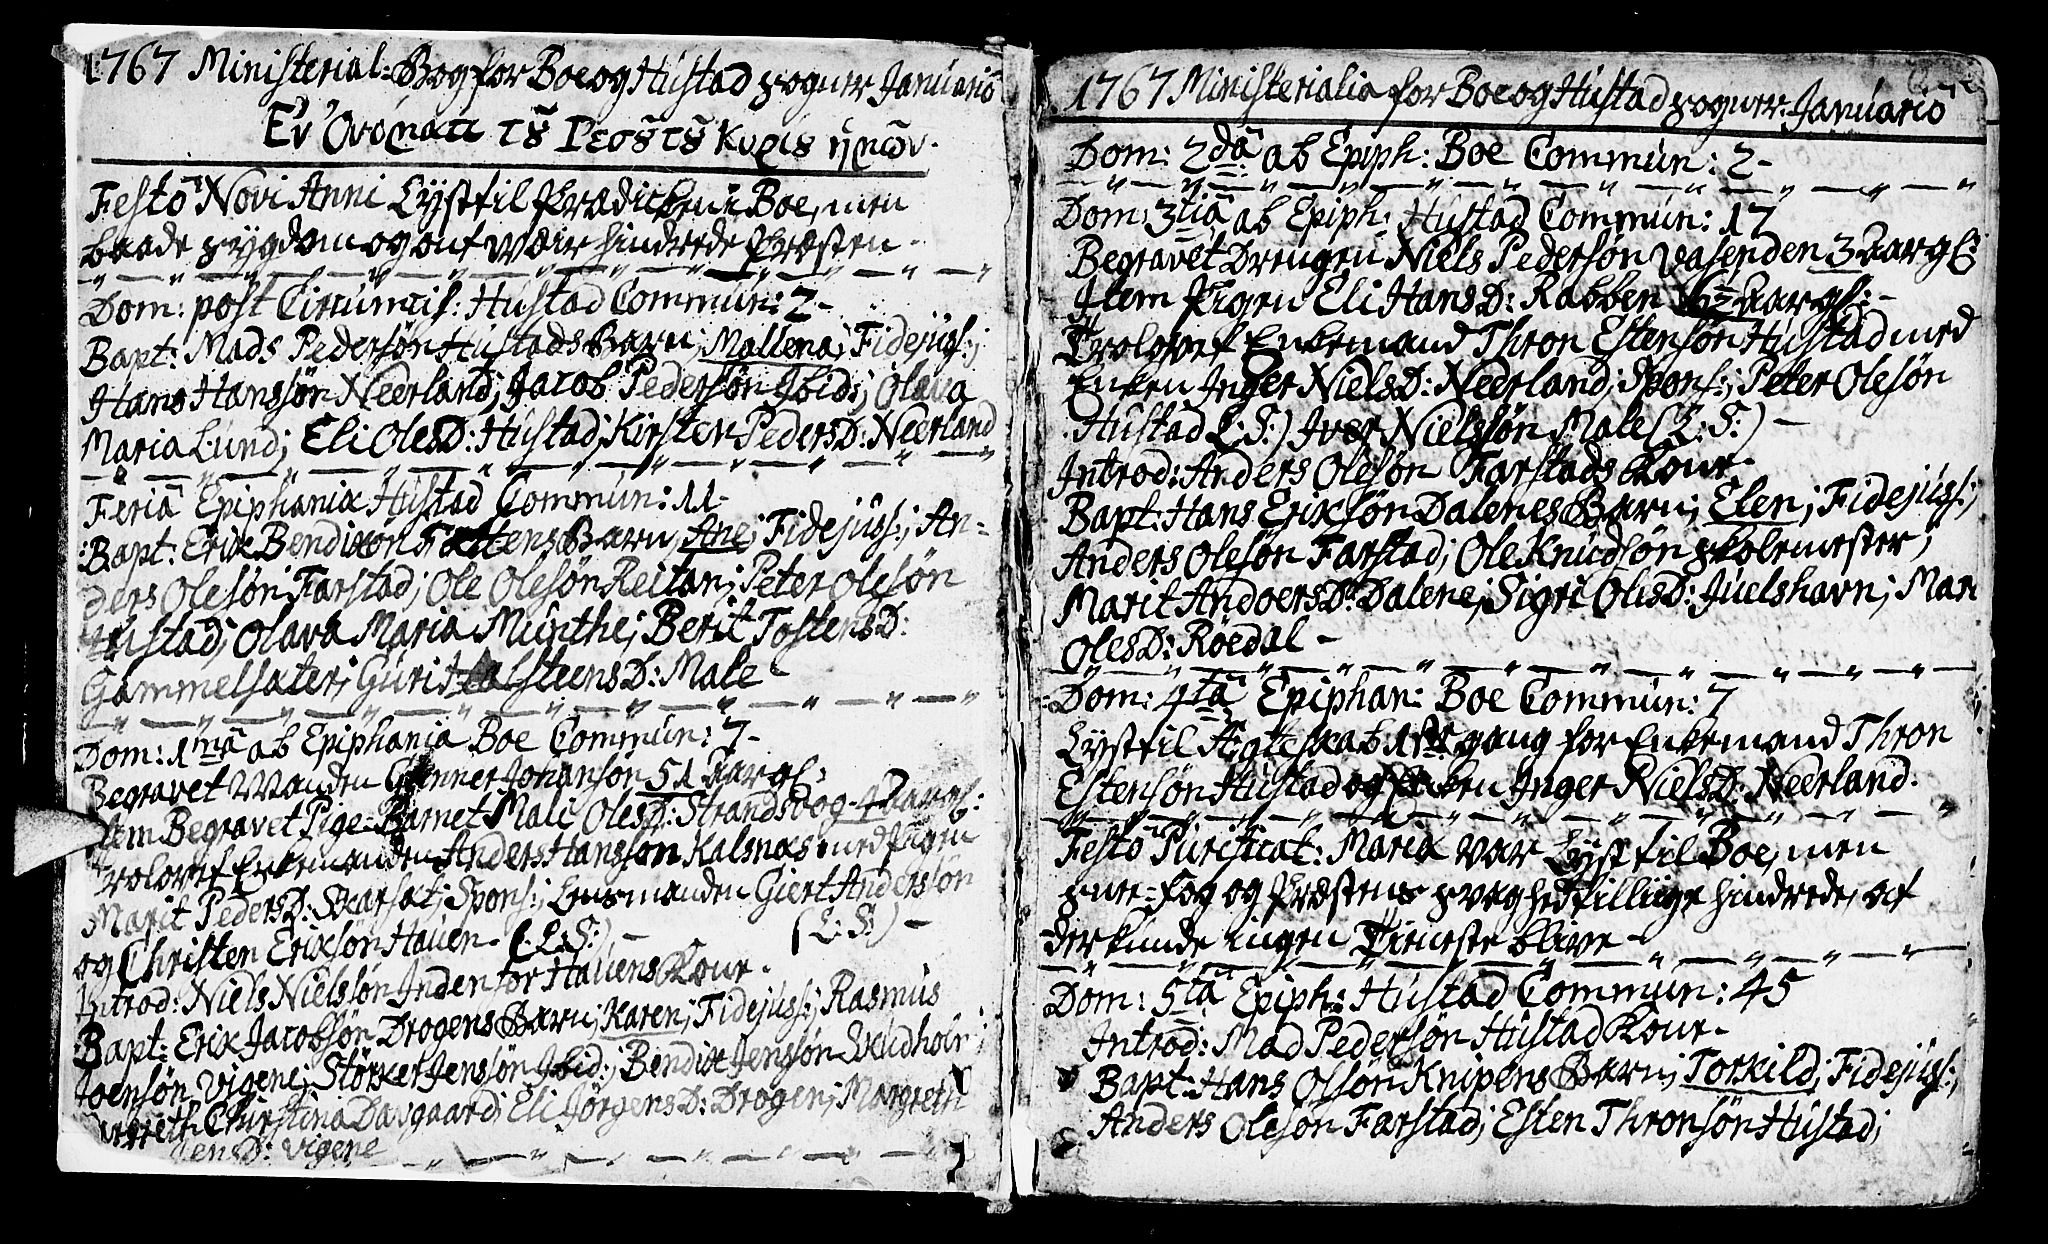 1767 Ministerial-Bog for Boe og Hustad Sogner Januario
Ἐν Ὀνόματι τȣ͂ Ιεσȣ͂ τȣ͂ Κυρίȣ ἡμῶν.
Festo Novi Anni Lyst til Prædicken i Boe, men
baade Sygdom og ont Weir hindrede Præsten.
Dom: post Circumcis: Hustad Commun: 2-
Bapt: Mads Pedersøn Hustads Barn; Mallena; Fidejuss:;
Hans Hanssøn Neerland; Jacob Pedersøn Ibid; Olava
Maria Lund; Eli OlesD: Hustad; Kirsten PedersD: Neerland
Feria Epiphaniæ Hustad Commun: 11-
Bapt: Erik Bendixøn Barn; Ane; Fidejuss:; An=
ders Olesøn Farstad; Ole Olesøn Reitan; Peter Olesøn
Hustad; Olava Maria Munthe; Berit TostensD:
Gammelsæter; Guri HalsteensD: Male
Dom: 1ma ab Epiphania Boe Commun: 7-
Begravet Manden Gunner Johansøn 51 Aar gl:
Item Begravet Pige-Barnet Mali OlesD: Strandsbog 4 Aar gl:
Trolovet Enkemanden Anders Hanssøn Kalsnæs med Pigen
Marit PedersD: Skarsæt; Spons:; Lensmanden Giert Anderssøn
og Christen Erixsøn Hauen. (L:S:) - (L:S:) -
Introd: Niels Nielssøn Indenfor Hauens Kone.
Bapt: Erik Jacobsøn Drogens Barn; Karen; Fidejuss:; Rasmus
Joensøn Vigene; Størker Jenssøn Ibid; Bendix Jenssøn
Margreth Christina Dasgaard; Eli JørgensD: Drogen; Margreth
JensD: Vigene
1767 Ministerialia for Boe og Hustad Sogner Januario
Dom: 2da ab Epiph: Boe Commun: 2-
Dom: 3tia ab Epiph: Hustad Commun: 17
Begravet Drengen Niels Pedersøn Vasenden 3 Aar gl:
Item Pigen Eli HansD: Rabben Aar gl:-
Trolovet Enkemand Thron Estensøn Hustad med
Enken Inger NielsD: Neerland; Spons:; Peter Olesøn
Hustad (L:S:) Iver Nielssøn Male (L:S:) -
Introd: Anders Olesøn Farstads Kone-
Bapt: Hans Erixsøn Dalenes Barn; Elen; Fidejuss:;
Anders Olesøn Farstad; Ole Knudsøn Skolemester;
Marit AndersD: Dalene; Sigri OlesD: Juelshavn; Mari
OlesD: Røedal -
Dom: 4ta Epiphan: Boe Commun: 7
Lyst til Ægteskab 1ste gang for Enkemand Thron
Estensøn Hustad og Enken Inger NielsD: Neerland.
Festo Purificat: Mariæ var Lyst til Boe, men
Snee-fog og Præstens Svaghed tilliige hindrede, at
der kunde ingen Tieneste blive -
Dom: 5ta Epiph: Hustad Commun: 45
Introd: Mad Pedersøn Hustad Kone-
Bapt: Hans Olsøn Knipens Barn; Torkild; Fidejuss:;
Anders Olesøn Farstad; Esten Thronsøn Hustad;